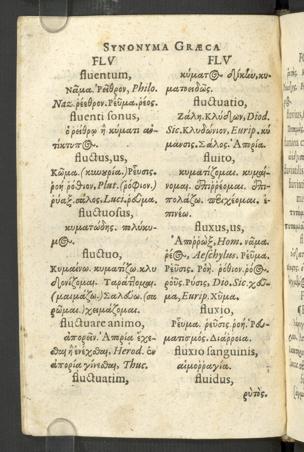 SYNONYMA GRÆCA
FLV
fluentum,
Νᾶμα. Ῥέεθρον, Philo.
Naz. ῥέεθρον. Ῥεῦμα. ῥέος.
fluenti sonus,
ὁ ῥείθρῳ ἢ κύματι
fluctus, us,
Κῦμα. Ῥεῦσις.
ῥοὴ ῥόθιον, Plut.
σάλος. Luci. ῥεῦμα.
fluctuosus,
κυματώδης. πολύκυ-
μος.
fluctuo,
Κυμαίνω. κυματίζω. κλυ
δωνίζομαι. Ταράττομαι.
(μαιμάζω.) Σαλεύω. (σα
χειμάζομαι.
fluctuare animo,
ἀπορεῖν. Ἀπορίᾳ ἔχε-
σθαι ἢ ἐνέχεσθαι. Herod. ἐν
ἀπορίᾳ γίνεσθαι. Thuc.
fluctuatim,
FLV
κύματος δίκην. κυ-
ματοειδῶς.
fluctuatio,
Ζάλη. Κλύδων, Diod.
Sic. Κλυδώνιον, Eurip. κύ
μανσις. Σάλος. Ἀπορία.
fluito,
κυματίζομαι. κυμαί-
νομαι. ἐπιρρέομαι. ἐπι-
πολάζω.
πνέω.
fluxus, us,
Ἀπόρροξ, Hom. νᾶμα.
ῥέος, Aeschylus. Ῥεῦμα.
Ῥεῦσις. Ῥοή. ῥόθιον. ῥόος.
ῥοῦς. Ρύσις, Dio. Sic. χεῦ-
μα, Eurip. Χῦμα.
fluxio,
Ῥεῦμα. ῥεῦσις. ῥοή. Ῥευ-
ματισμός. Διάρροια.
fluxio sanguinis,
αἱμορραγία.
fluidus,
ῥυτός.